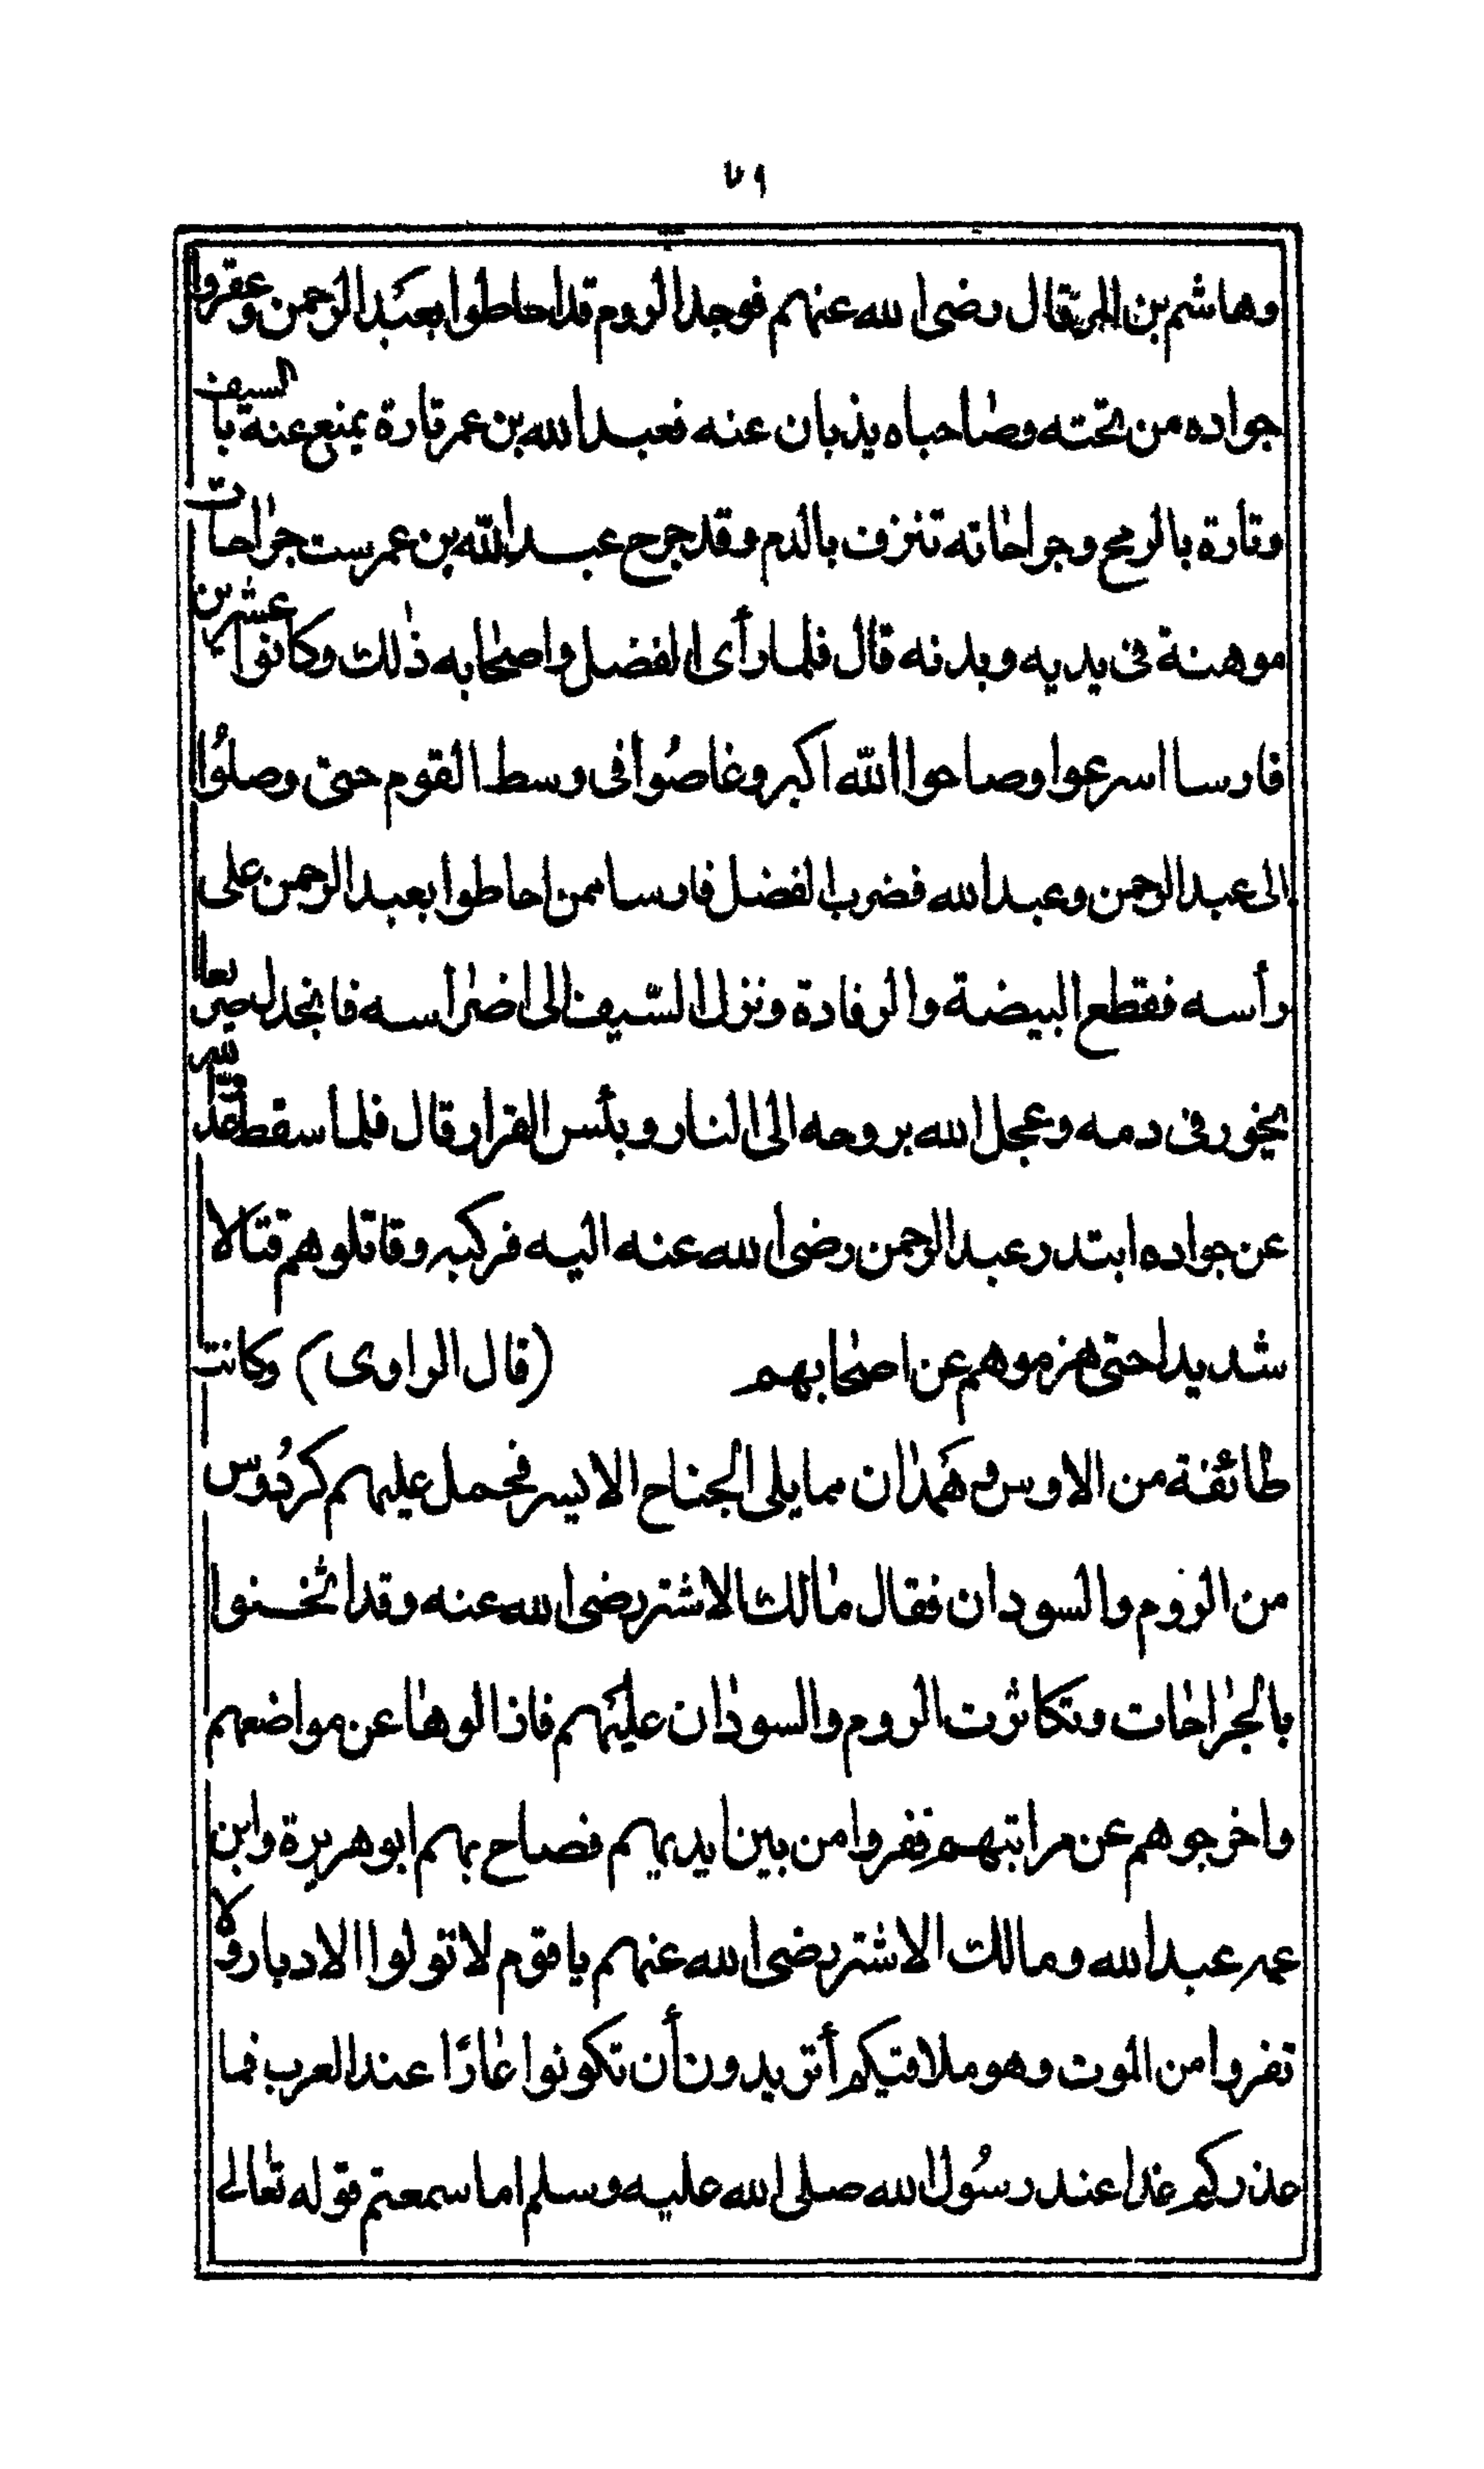 ٧٩
وهاشم بن المرقال رضى الله عنهم فوجد الروم قد احاطوا بعبد الرحمن وعقروا
جواده من تحته وصاحباه يذبان عنه فعبد الله بن عمر تارة يمنع عنه بالسيف
وتارة بالرمح وجراحاته تنزف بالدم وقد جرح عبد الله بن عمر ست جراحات
موهنة فى يديه وبدنه قال فلما رأى الفضل واصحابه ذلك وكانوا عشرين
فارسا اسرعوا وصاحوا الله اكبر وغاصوا فى وسط القوم حتى وصلوا
الى عبد الرحمن وعبد الله فضرب الفضل فارسا ممن احاطوا بعبد الرحمن على
رأسه فقطع البيضة والرفادة ونزل السيف الى اضراسه فانجدل صريعا
يخور فى دمه وعجل الله بروحه الى النار وبئس القرار قال فلما سقط
عن جواده ابتدر عبد الرحمن رضى الله عنه اليه فركبه وقاتلوهم قتالا
شديدا حتى هزموهم عن اصحابهم (قال الراوى) وكانت
طائفة من الاوس وهمدان مما يلى الجناح الايسر فحمل عليهم كردوس
من الروم والسودان فقال مالك الاشتر رضى الله عنه وقد اثخنوا
بالجراحات وتكاثرت الروم والسودان عليهم فازالوها عن مواضعهم
واخرجوهم عن مراتبهم ففروا من بين ايديهم فصاح بهم ابو هريرة وابن
عمر عبد الله ومالك الاشتر رضى الله عنهم يا قوم لا تولوا الادبار ولا
تفروا من الموت وهو ملاقيكم أتريدون أن تكونوا عارا عند العرب فما
عذركم غدا عند رسول الله صلى الله عليه وسلم اما سمعتم قوله تعالى